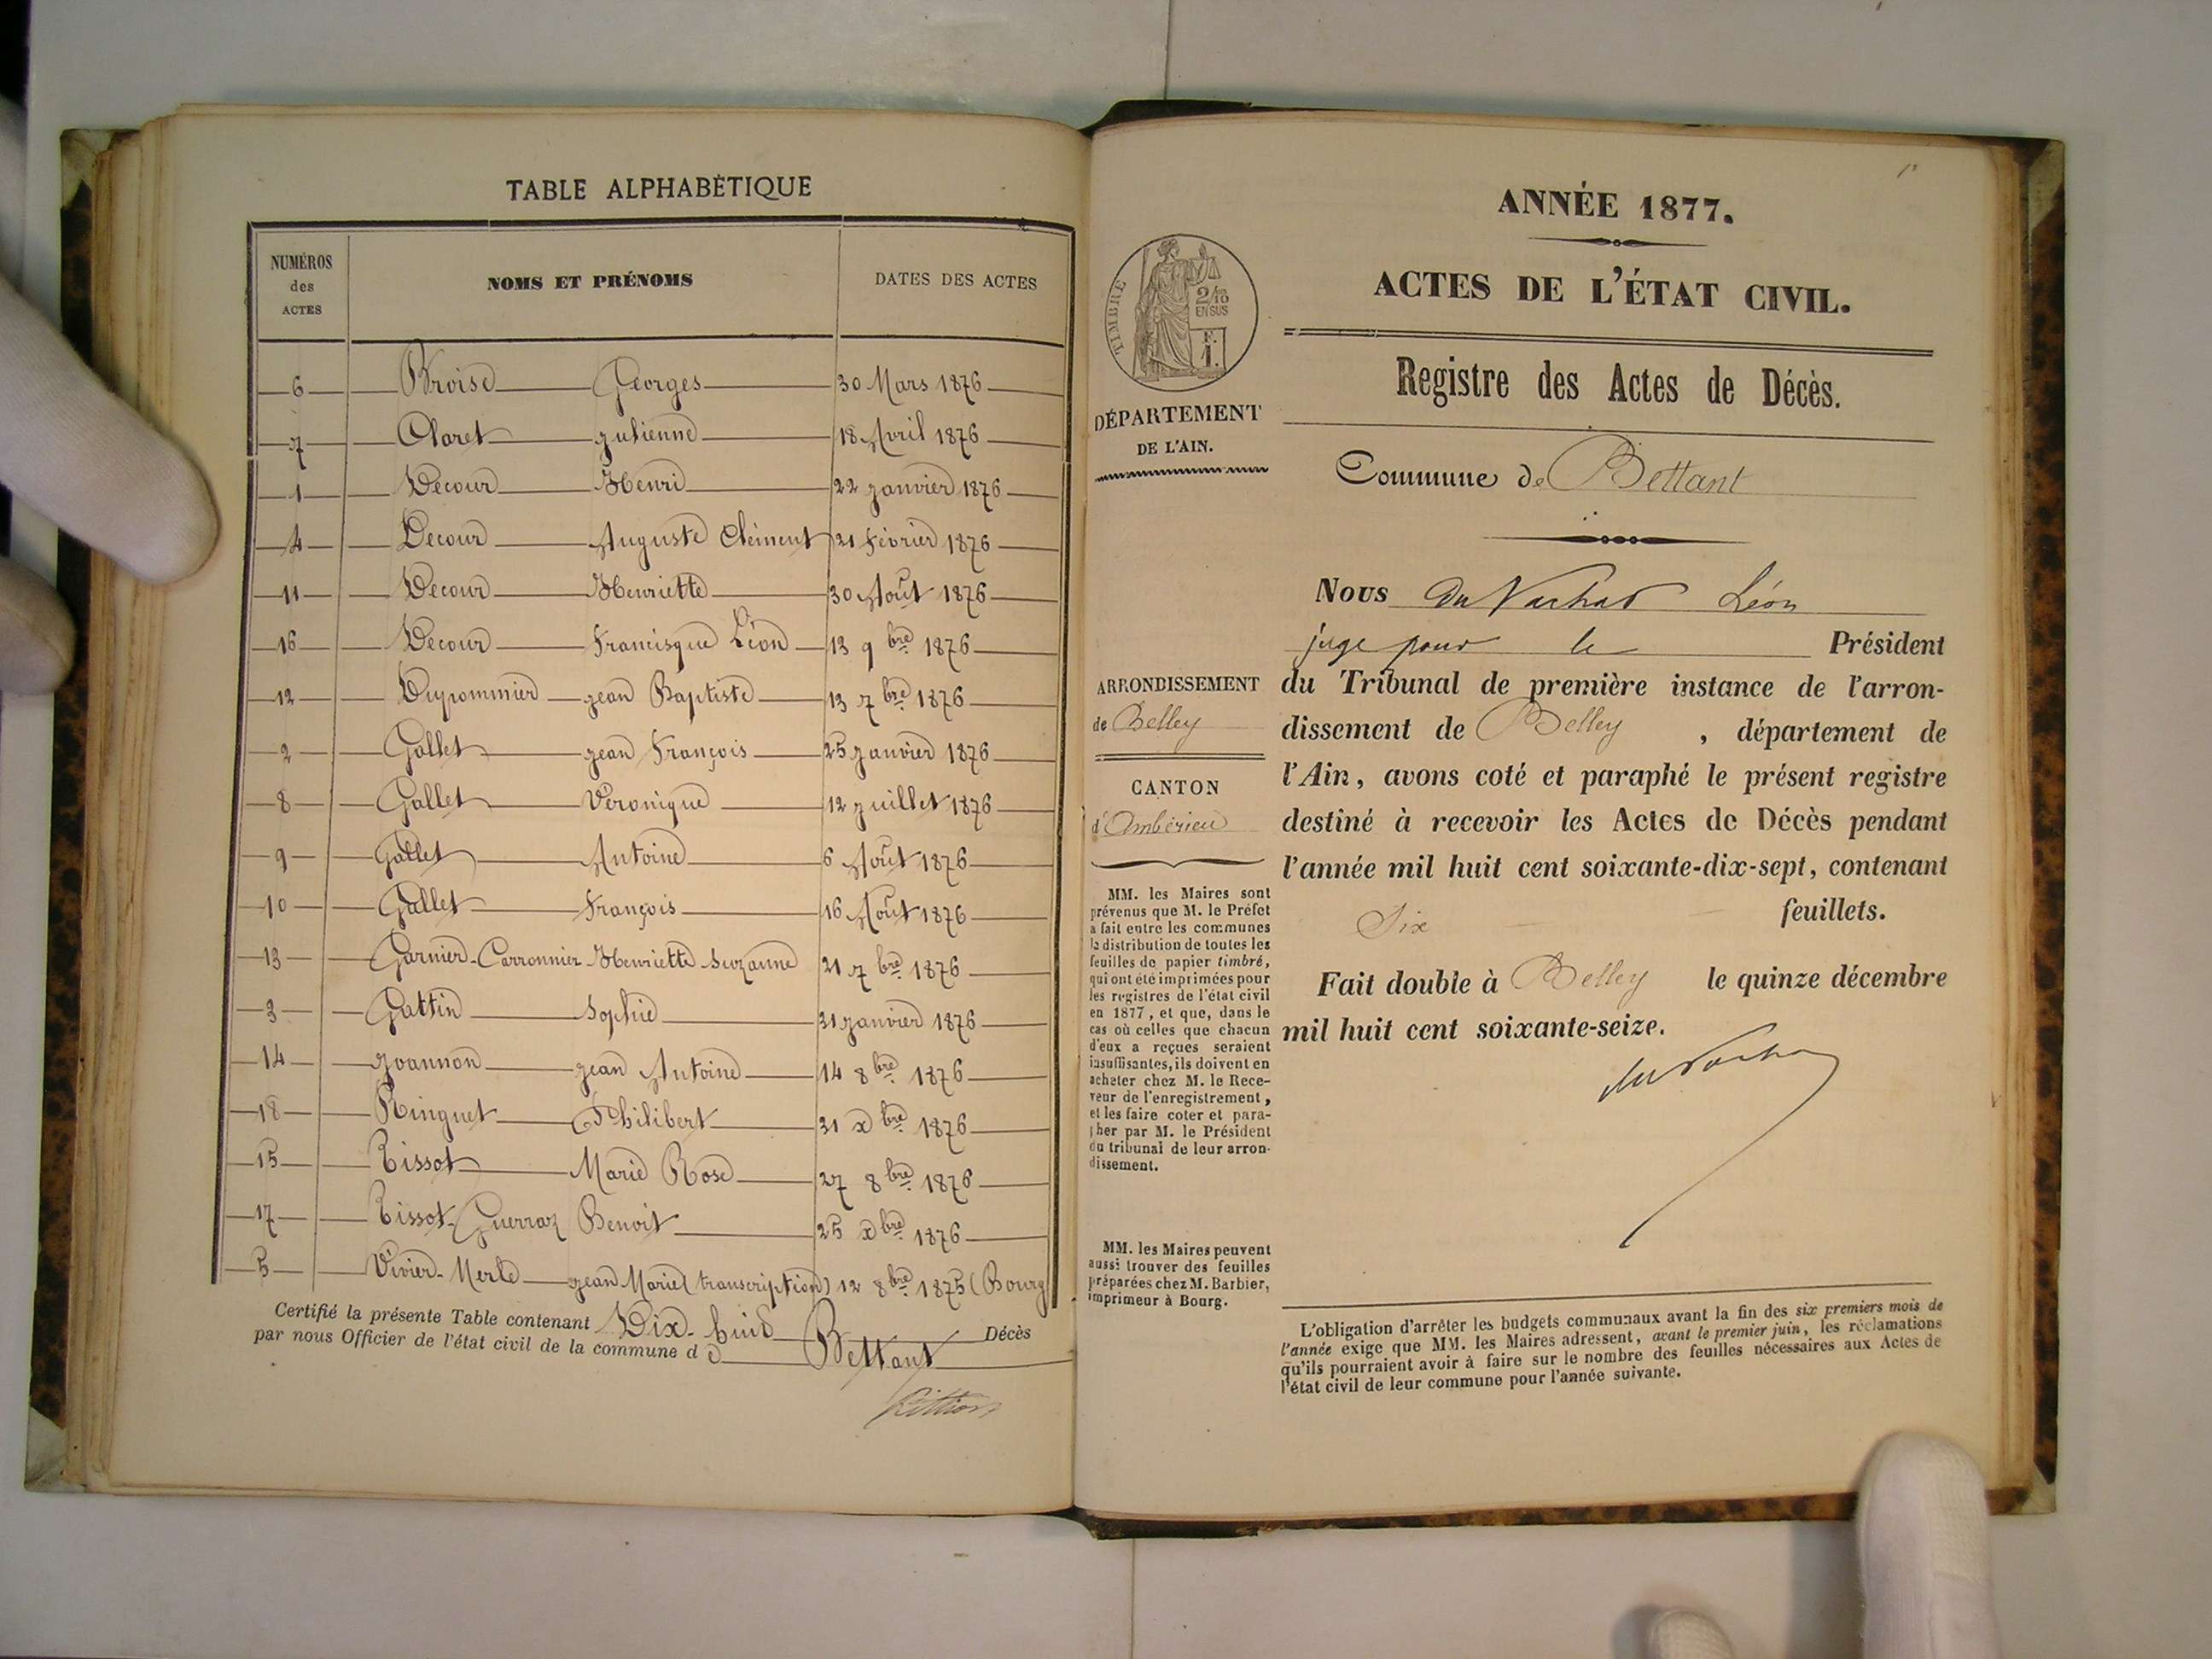 TABLE ALPHABÉTIQUE
NUMÉROS des ACTES NOMS ET PRÉNOMS DATES DES ACTES
6 Broise Georges 30 Mars 1876
7 Claret Julienne 18 Avril 1876
1 Decour Henri 22 Janvier 1876
4 Decour Auguste Clément 21 Février 1876
11 Decour Henriette 30 Août 1876
16 Decour Francisque Léon 13 9bre 1876
12 Dupommier Jean Baptiste 13 7bre 1876
2 Gallet Jean François 25 Janvier 1876
8 Gallet Véronique 12 Juillet 1876
9 Gallet Antoine 6 Août 1876
10 Gallet François 16 Août 1876
13 Garnier-Carronnier Henriette Suzanne 21 7bre 1876
3 Gattin Sophie 31 Janvier 1876
14 Joannon Jean Antoine 14 8bre 1876
18 Ringuet Philibert 31 xbre 1876
15 Tissot Marie Rose 27 8bre 1876
17 Tissot-Guerraz Benoit 25 xbre 1876
5 Vivier-Merle Jean Marie (transcription) 12 8bre 1875 (Bourg)
Certifié la présente Table contenant Dix-huit Décès
par nous Officier de l'état civil de la commune d e Bettant
ANNÉE 1877.
ACTES DE L'ÉTAT CIVIL.
Registre des Actes de Décès.
TIMBRE
2/10
EN SUS
F.
1.
DÉPARTEMENT
DE L'AIN.
Commune de Bettant
Nous du Vachat Léon
juge pour le Président
du Tribunal de première instance de l'arron-
dissement de Belley , département de
l'Ain, avons coté et paraphé le présent registre
destiné à recevoir les Actes de Décès pendant
l'année mil huit cent soixante-dix-sept, contenant
Six feuillets.
Fait double à Belley le quinze décembre
mil huit cent soixante-seize.
du Vachat
ARRONDISSEMENT
de Belley
CANTON
d'Ambérieu
MM. les Maires sont
prévenus que M. le Préfet
a fait entre les communes
la distribution de toutes les
feuilles de papier timbré,
qui ont été imprimées pour
les registres de l'état civil
en 1877, et que, dans le
cas où celles que chacun
d'eux a reçues seraient
insuffisantes, ils doivent en
acheter chez M. le Rece-
veur de l'enregistrement,
et les faire coter et para-
pher par M. le Président
du tribunal de leur arron-
dissement.
MM. les Maires peuvent
aussi trouver des feuilles
préparées chez M. Barbier,
imprimeur à Bourg.
L'obligation d'arrêter les budgets communaux avant la fin des six premiers mois de
l'année exige que MM. les Maires adressent, avant le premier juin, les réclamations
qu'ils pourraient avoir à faire sur le nombre des feuilles nécessaires aux Actes de
l'état civil de leur commune pour l'année suivante.